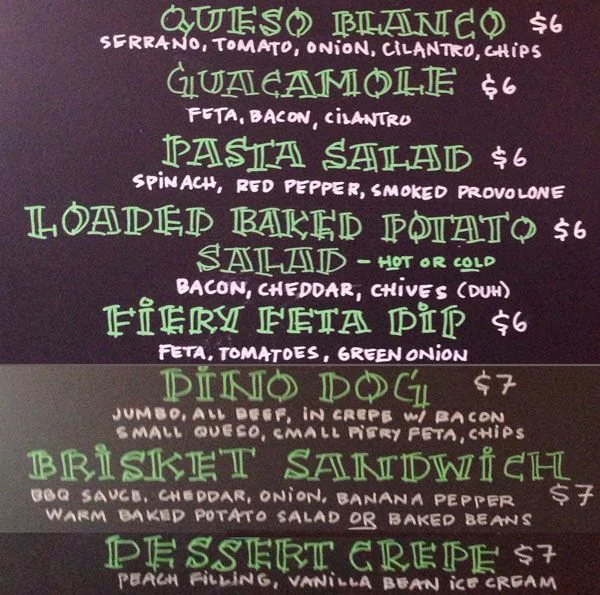 QUESO BLANCO $6
SERRANO, TOMATO, ONION, CILANTRO, CHIPS
GUACAMOLE $6
FETA, BACON, CILANTRO
PASTA SALAD $6
SPINACH, RED PEPPER, SMOKED PROVOLONE
LOADED BAKED POTATO $6
SALAD - HOT OR COLD
BACON, CHEDDAR, CHIVES (DUH)
FIERY FETA DIP $6
FETA, TOMATOES, GREEN ONION
DINO DOG $7
JUMBO, ALL BEEF, IN CREPE W/ BACON
SMALL QUESO, SMALL FIERY FETA, CHIPS
BRISKET SANDWICH
BBQ SAUCE, CHEDDAR, ONION, BANANA PEPPER $7
WARM BAKED POTATO SALAD OR BAKED BEANS
DESSERT CREPE $7
PEACH FILLING, VANILLA BEAN ICE CREAM